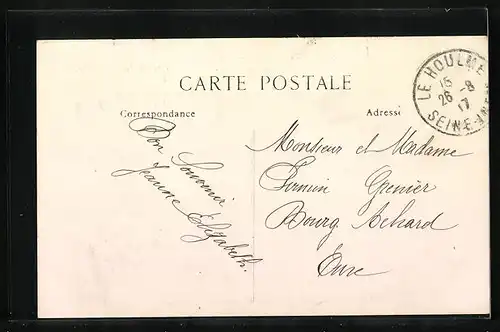 CARTE POSTALE
Correspondance
Adresse
LE HOULME
15
26 -8
17
SEINE-INFRE
Bon Souvenir
Jeanne Elizabeth.
Monsieur et Madame
Firmin Grenier
Bourg Achard
Eure